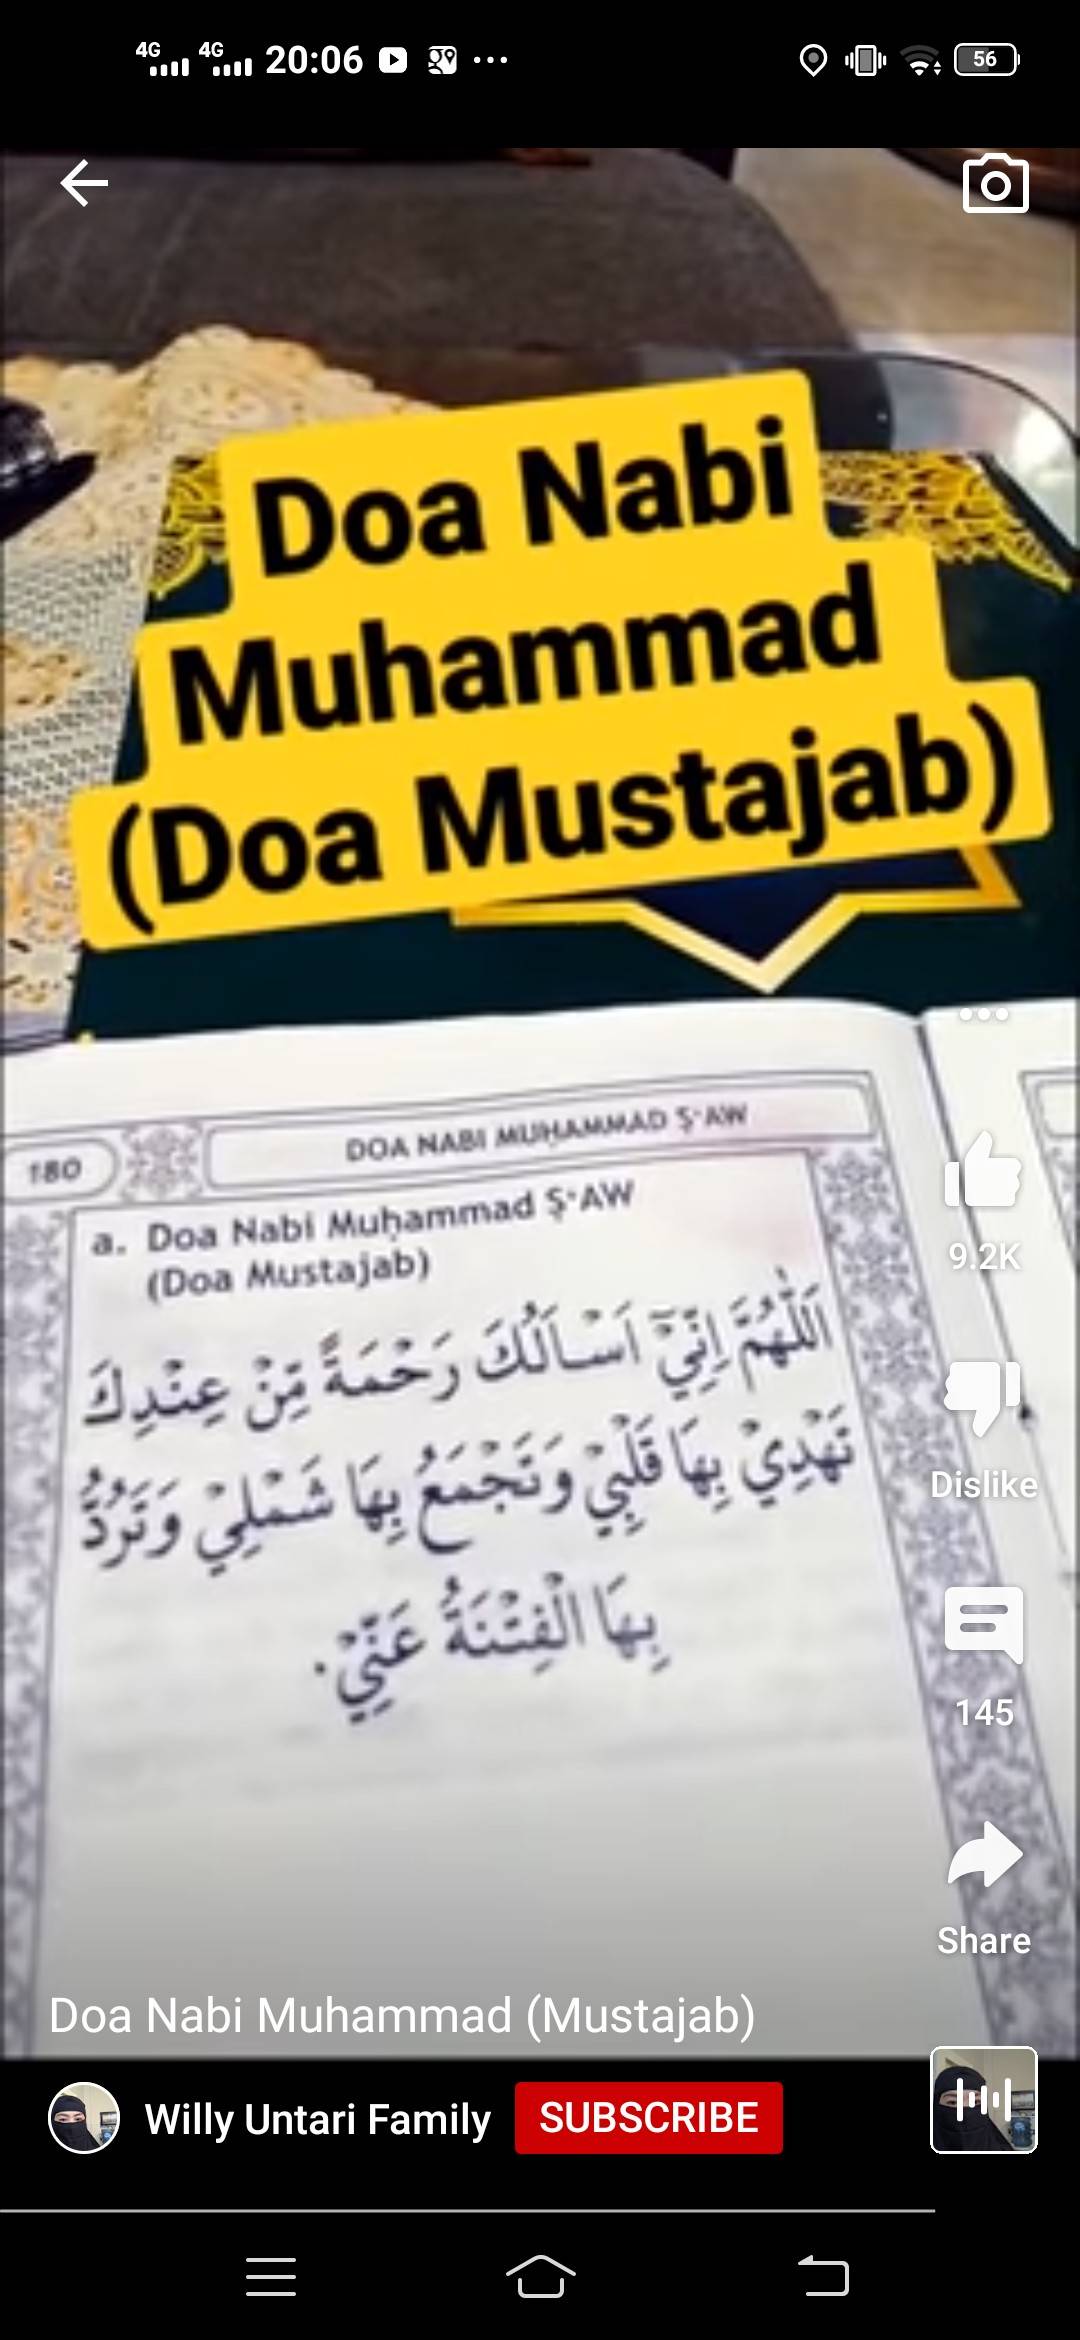 4G 4G 20:06 56
Doa Nabi
Muhammad
(Doa Mustajab)
180 DOA NABI MUḤAMMAD Ṣ·AW
a. Doa Nabi Muḥammad Ṣ·AW
(Doa Mustajab)
اَللّٰهُمَّ اِنِّيْٓ اَسْاَلُكَ رَحْمَةً مِّنْ عِنْدِكَ
تَهْدِيْ بِهَا قَلْبِيْ وَتَجْمَعُ بِهَا شَمْلِيْ وَتَرُدُّ
بِهَا الْفِتْنَةُ عَنِّيْ.
9.2K
Dislike
145
Share
Doa Nabi Muhammad (Mustajab)
Willy Untari Family SUBSCRIBE